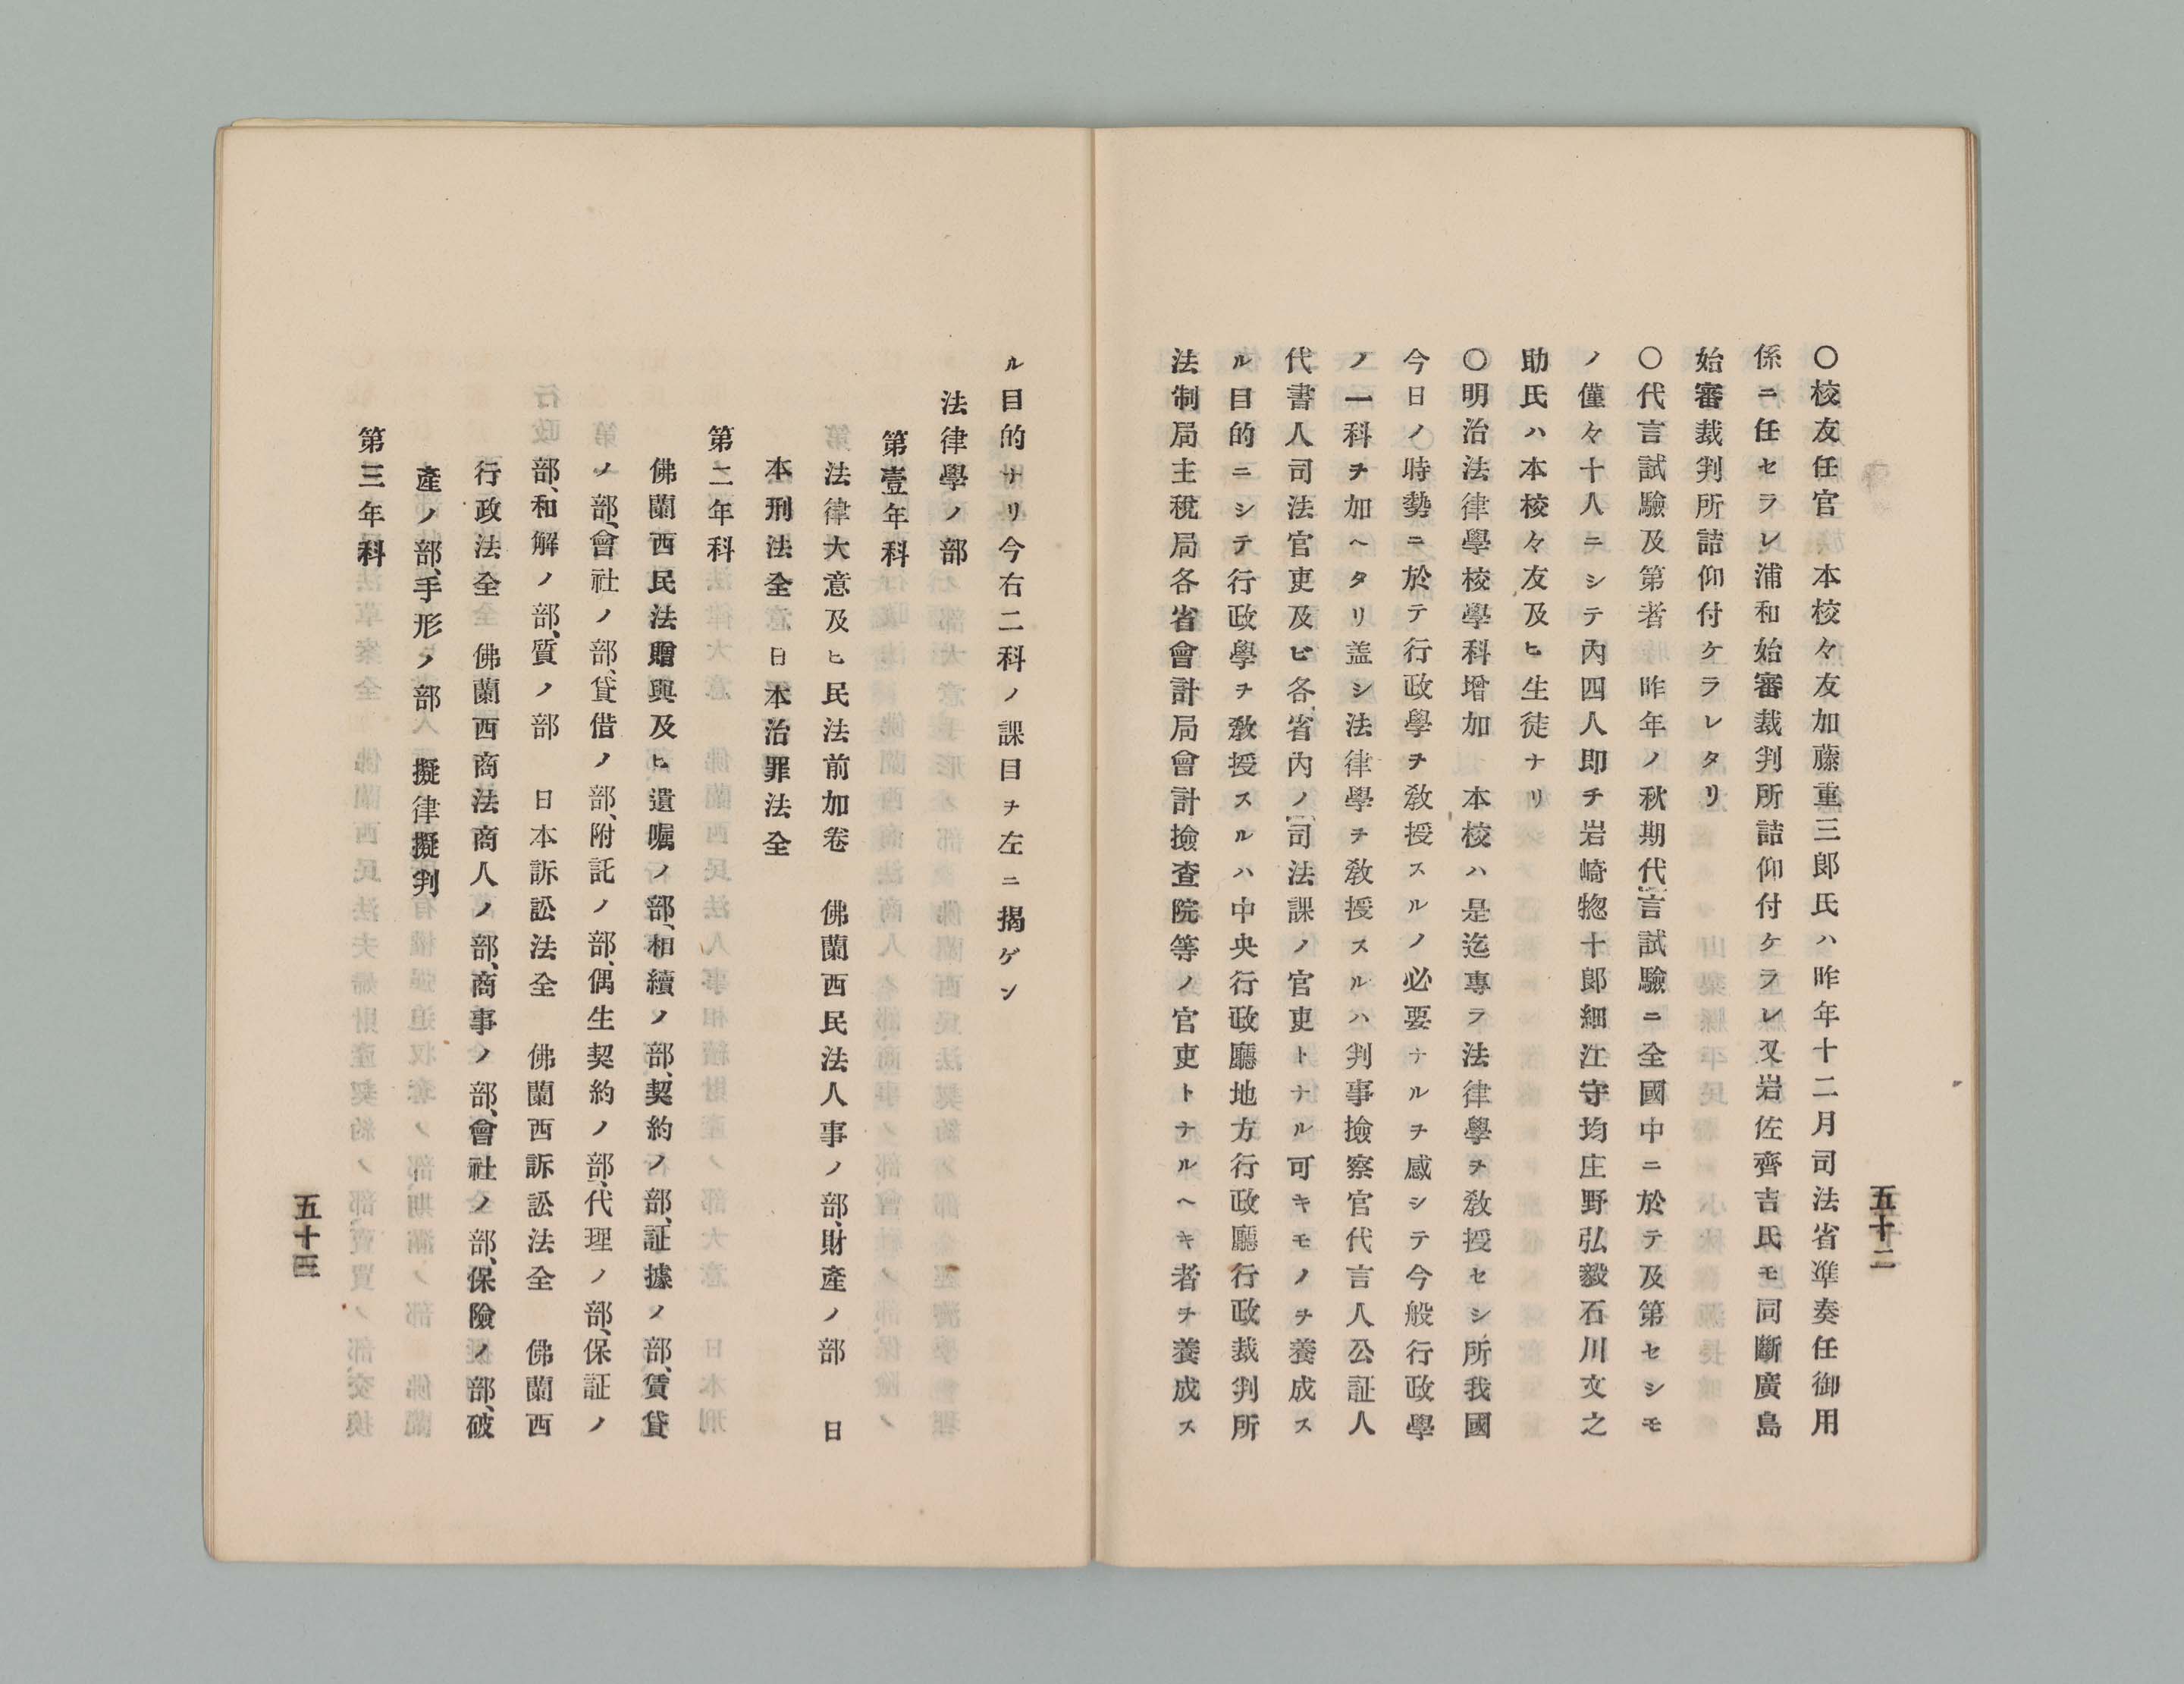 五十二
〇校友任官　本校々友加藤重三郎氏ハ昨年十二月司法省準奏任御用
係ニ任セラレ浦和始審裁判所詰仰付ケラレ又岩佐齊吉氏モ同斷廣島
始審裁判所詰仰付ケラレタリ
〇代言試驗及第者　昨年ノ秋期代言試驗ニ全國中ニ於テ及第セシモ
ノ僅々十八ニシテ內四人即チ岩崎惣十郞細江守均庄野弘毅石川文之
助氏ハ本校々友及ヒ生徒ナリ
〇明治法律學校學科增加　本校ハ是迄專ラ法律學ヲ敎授セシ所我國
今日ノ時勢ニ於テ行政學ヲ敎授スルノ必要ナルヲ感シテ今般行政學
ノ一科ヲ加ヘタリ盖シ法律學ヲ敎授スルハ判事撿察官代言人公証人
代書人司法官吏及ビ各省內ノ司法課ノ官吏トナル可キモノヲ養成ス
ル目的ニシテ行政學ヲ敎授スルハ中央行政廳地方行政廳行政裁判所
法制局主稅局各省會計局會計撿査院等ノ官吏トナルヘキ者ヲ養成ス
ル目的ナリ今右二科ノ課目ヲ左ニ揭ゲン
法律學ノ部
第壹年科
法律大意及ヒ民法前加卷　佛蘭西民法人事ノ部、財產ノ部　日
本刑法全　日本治罪法全
第二年科
佛蘭西民法贈與及ヒ遺囑ノ部、相續ノ部、契約ノ部、証據ノ部、賃貸
ノ部、會社ノ部、貸借ノ部、附託ノ部、偶生契約ノ部、代理ノ部、保証ノ
部、和解ノ部、質ノ部　日本訴訟法全　佛蘭西訴訟法全　佛蘭西
行政法全　佛蘭西商法商人ノ部、商事ノ部、會社ノ部、保險ノ部、破
產ノ部、手形ノ部　擬律擬判
第三年科
五十三